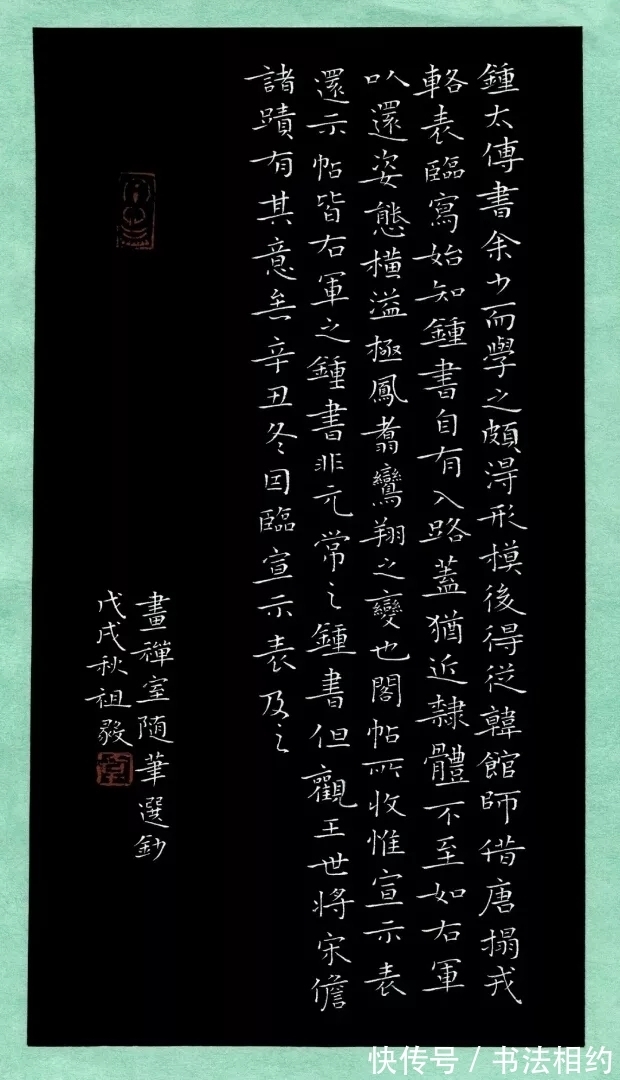 鍾太傅書余少而學之頗得形模後得從韓館師借唐搨戎
輅表臨寫始知鍾書自有入路蓋猶近隸體不至如右軍
以還姿態橫溢極鳳翥鸞翔之變也閣帖所收惟宣示表
還示帖皆右軍之鍾書非元常之鍾書但觀王世將宋儋
諸蹟有其意矣辛丑冬因臨宣示表及之
畫禪室隨筆選鈔
戊戌秋祖毅
快传号 / 书法相约